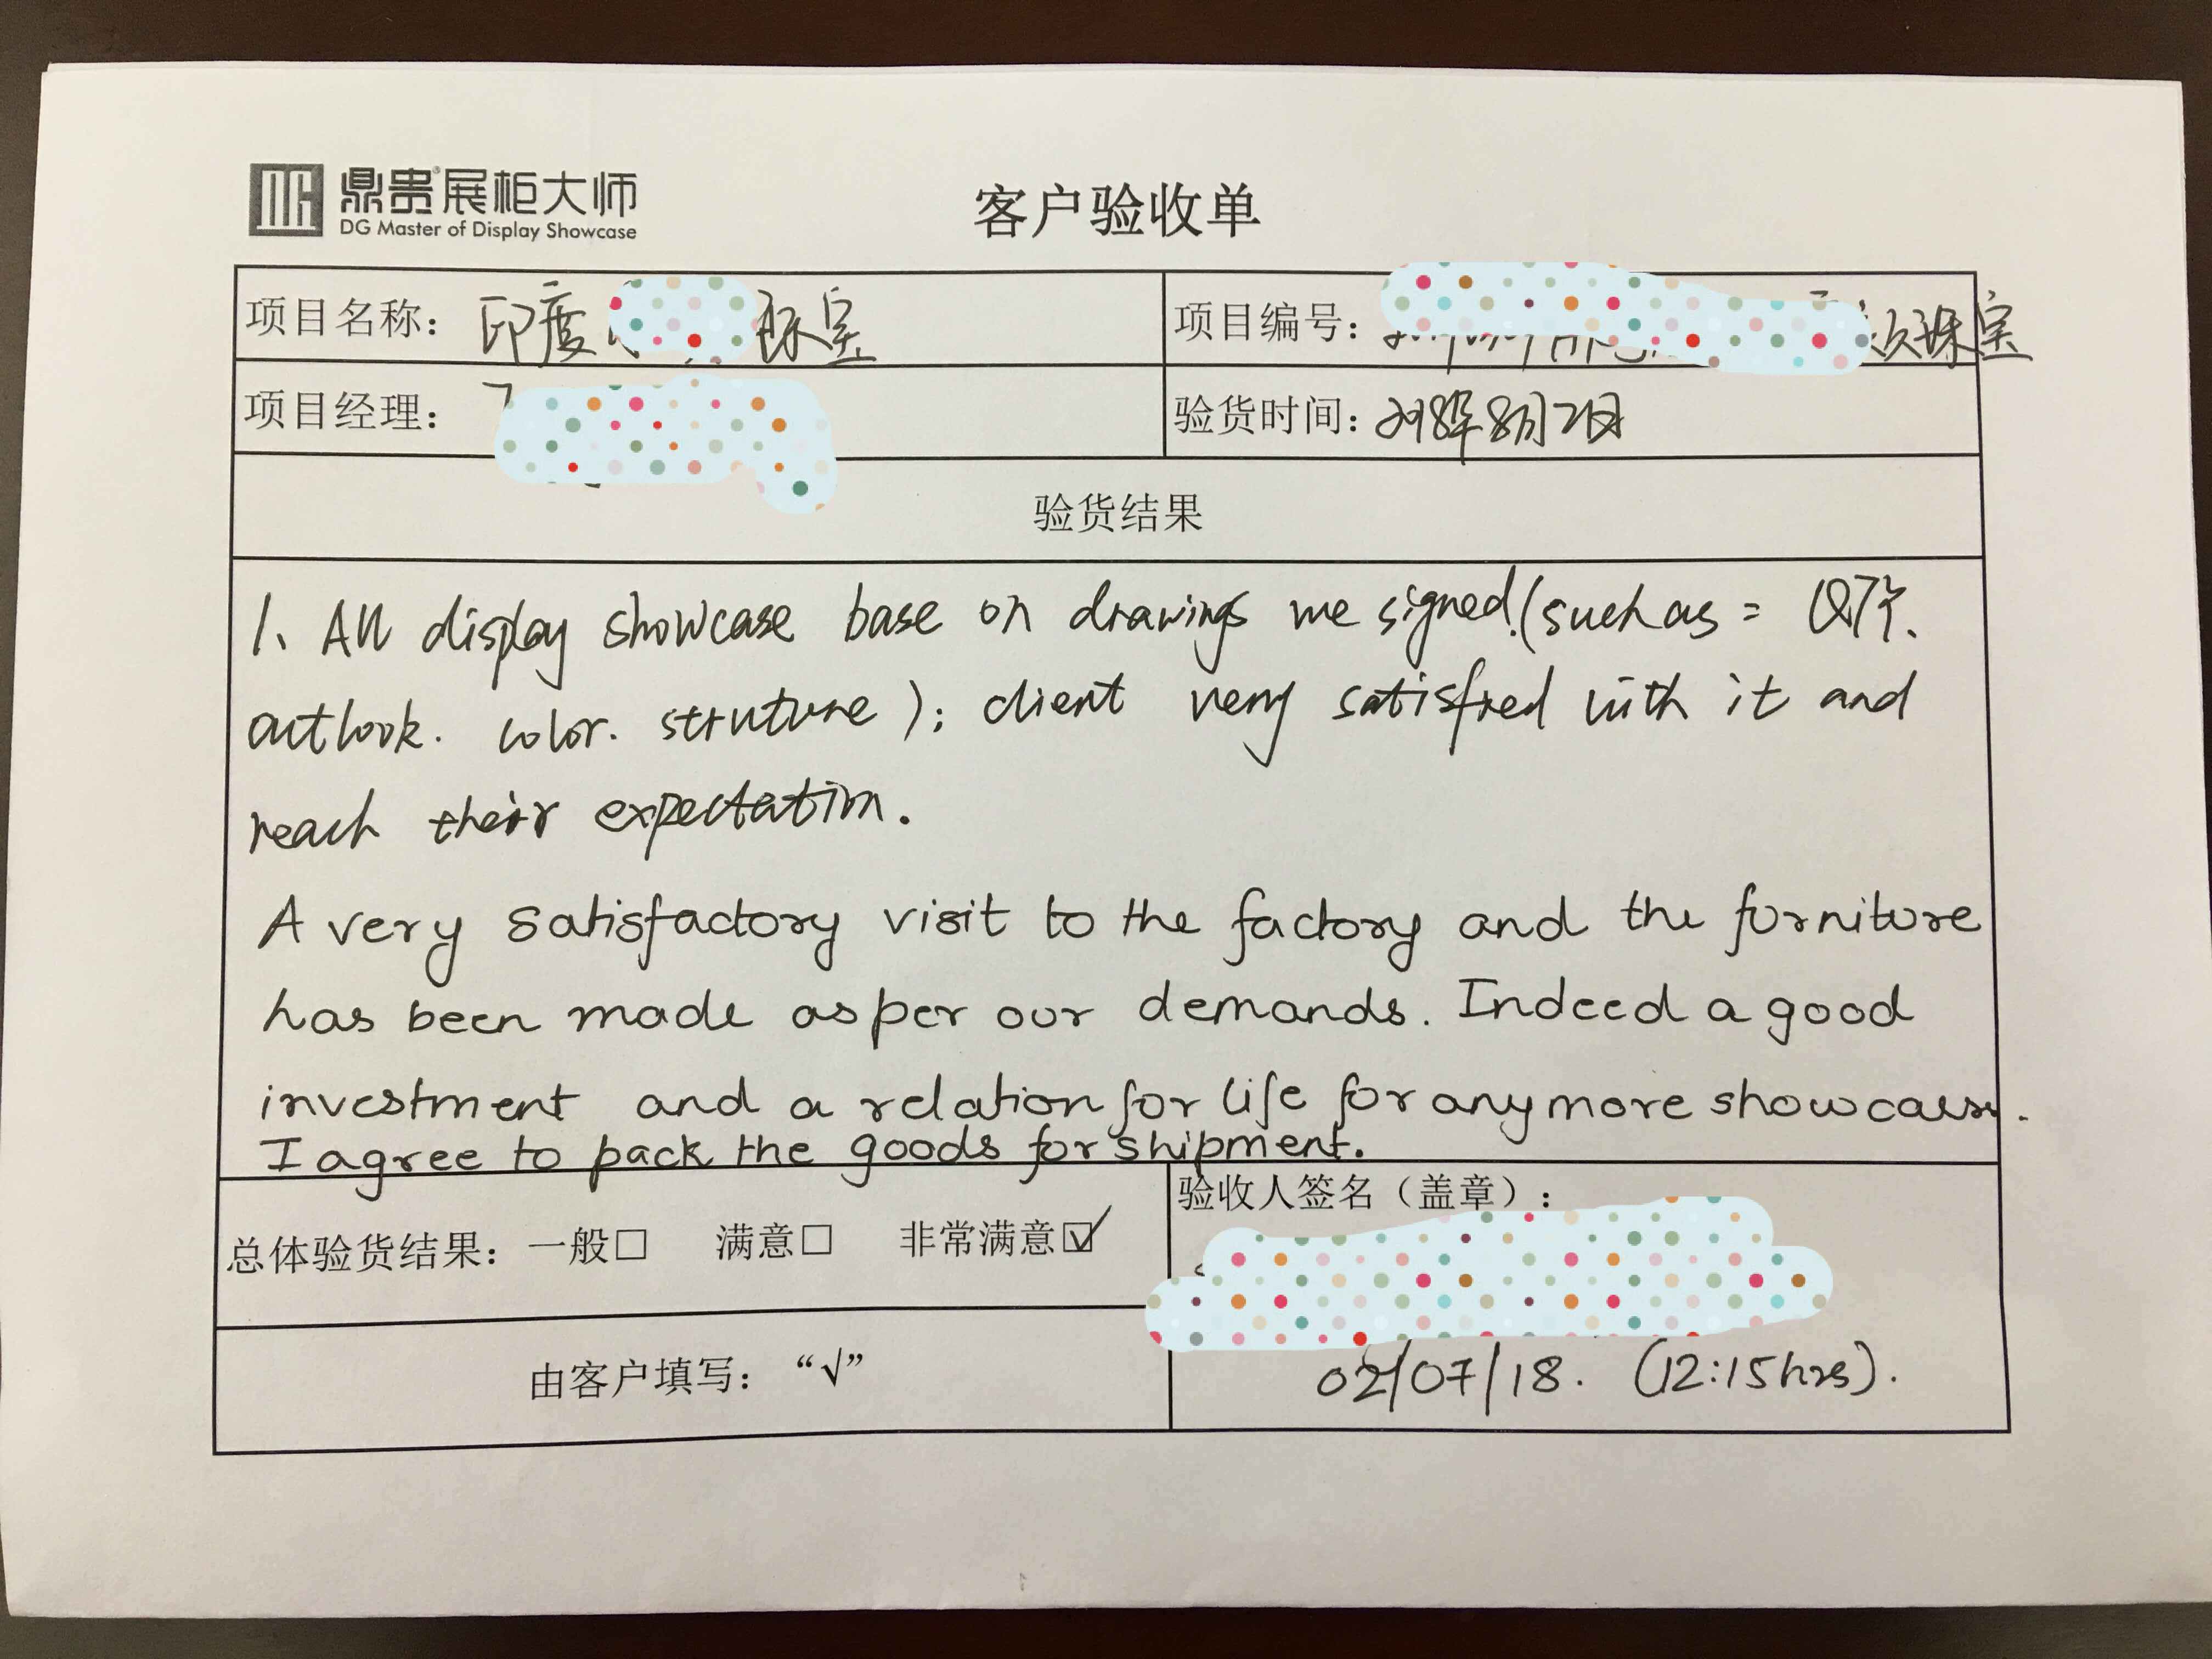 鼎贵®展柜大师
DG Master of Display Showcase
客户验收单
项目名称： 印度 珠宝
项目编号： 珠宝
项目经理：
验货时间： 2018年8月2日
验货结果
1、All display showcase base on drawings we signed.(such as: QTY、
outlook. color. struture); client very satisfied with it and
reach their expectation.
A very satisfactory visit to the factory and the furniture
has been made as per our demands. Indeed a good
investment and a relation for life for any more showcases.
I agree to pack the goods for shipment.
总体验货结果：一般□ 满意□ 非常满意☑
验收人签名（盖章）：
由客户填写：“√”
02/07/18. (12:15hrs).